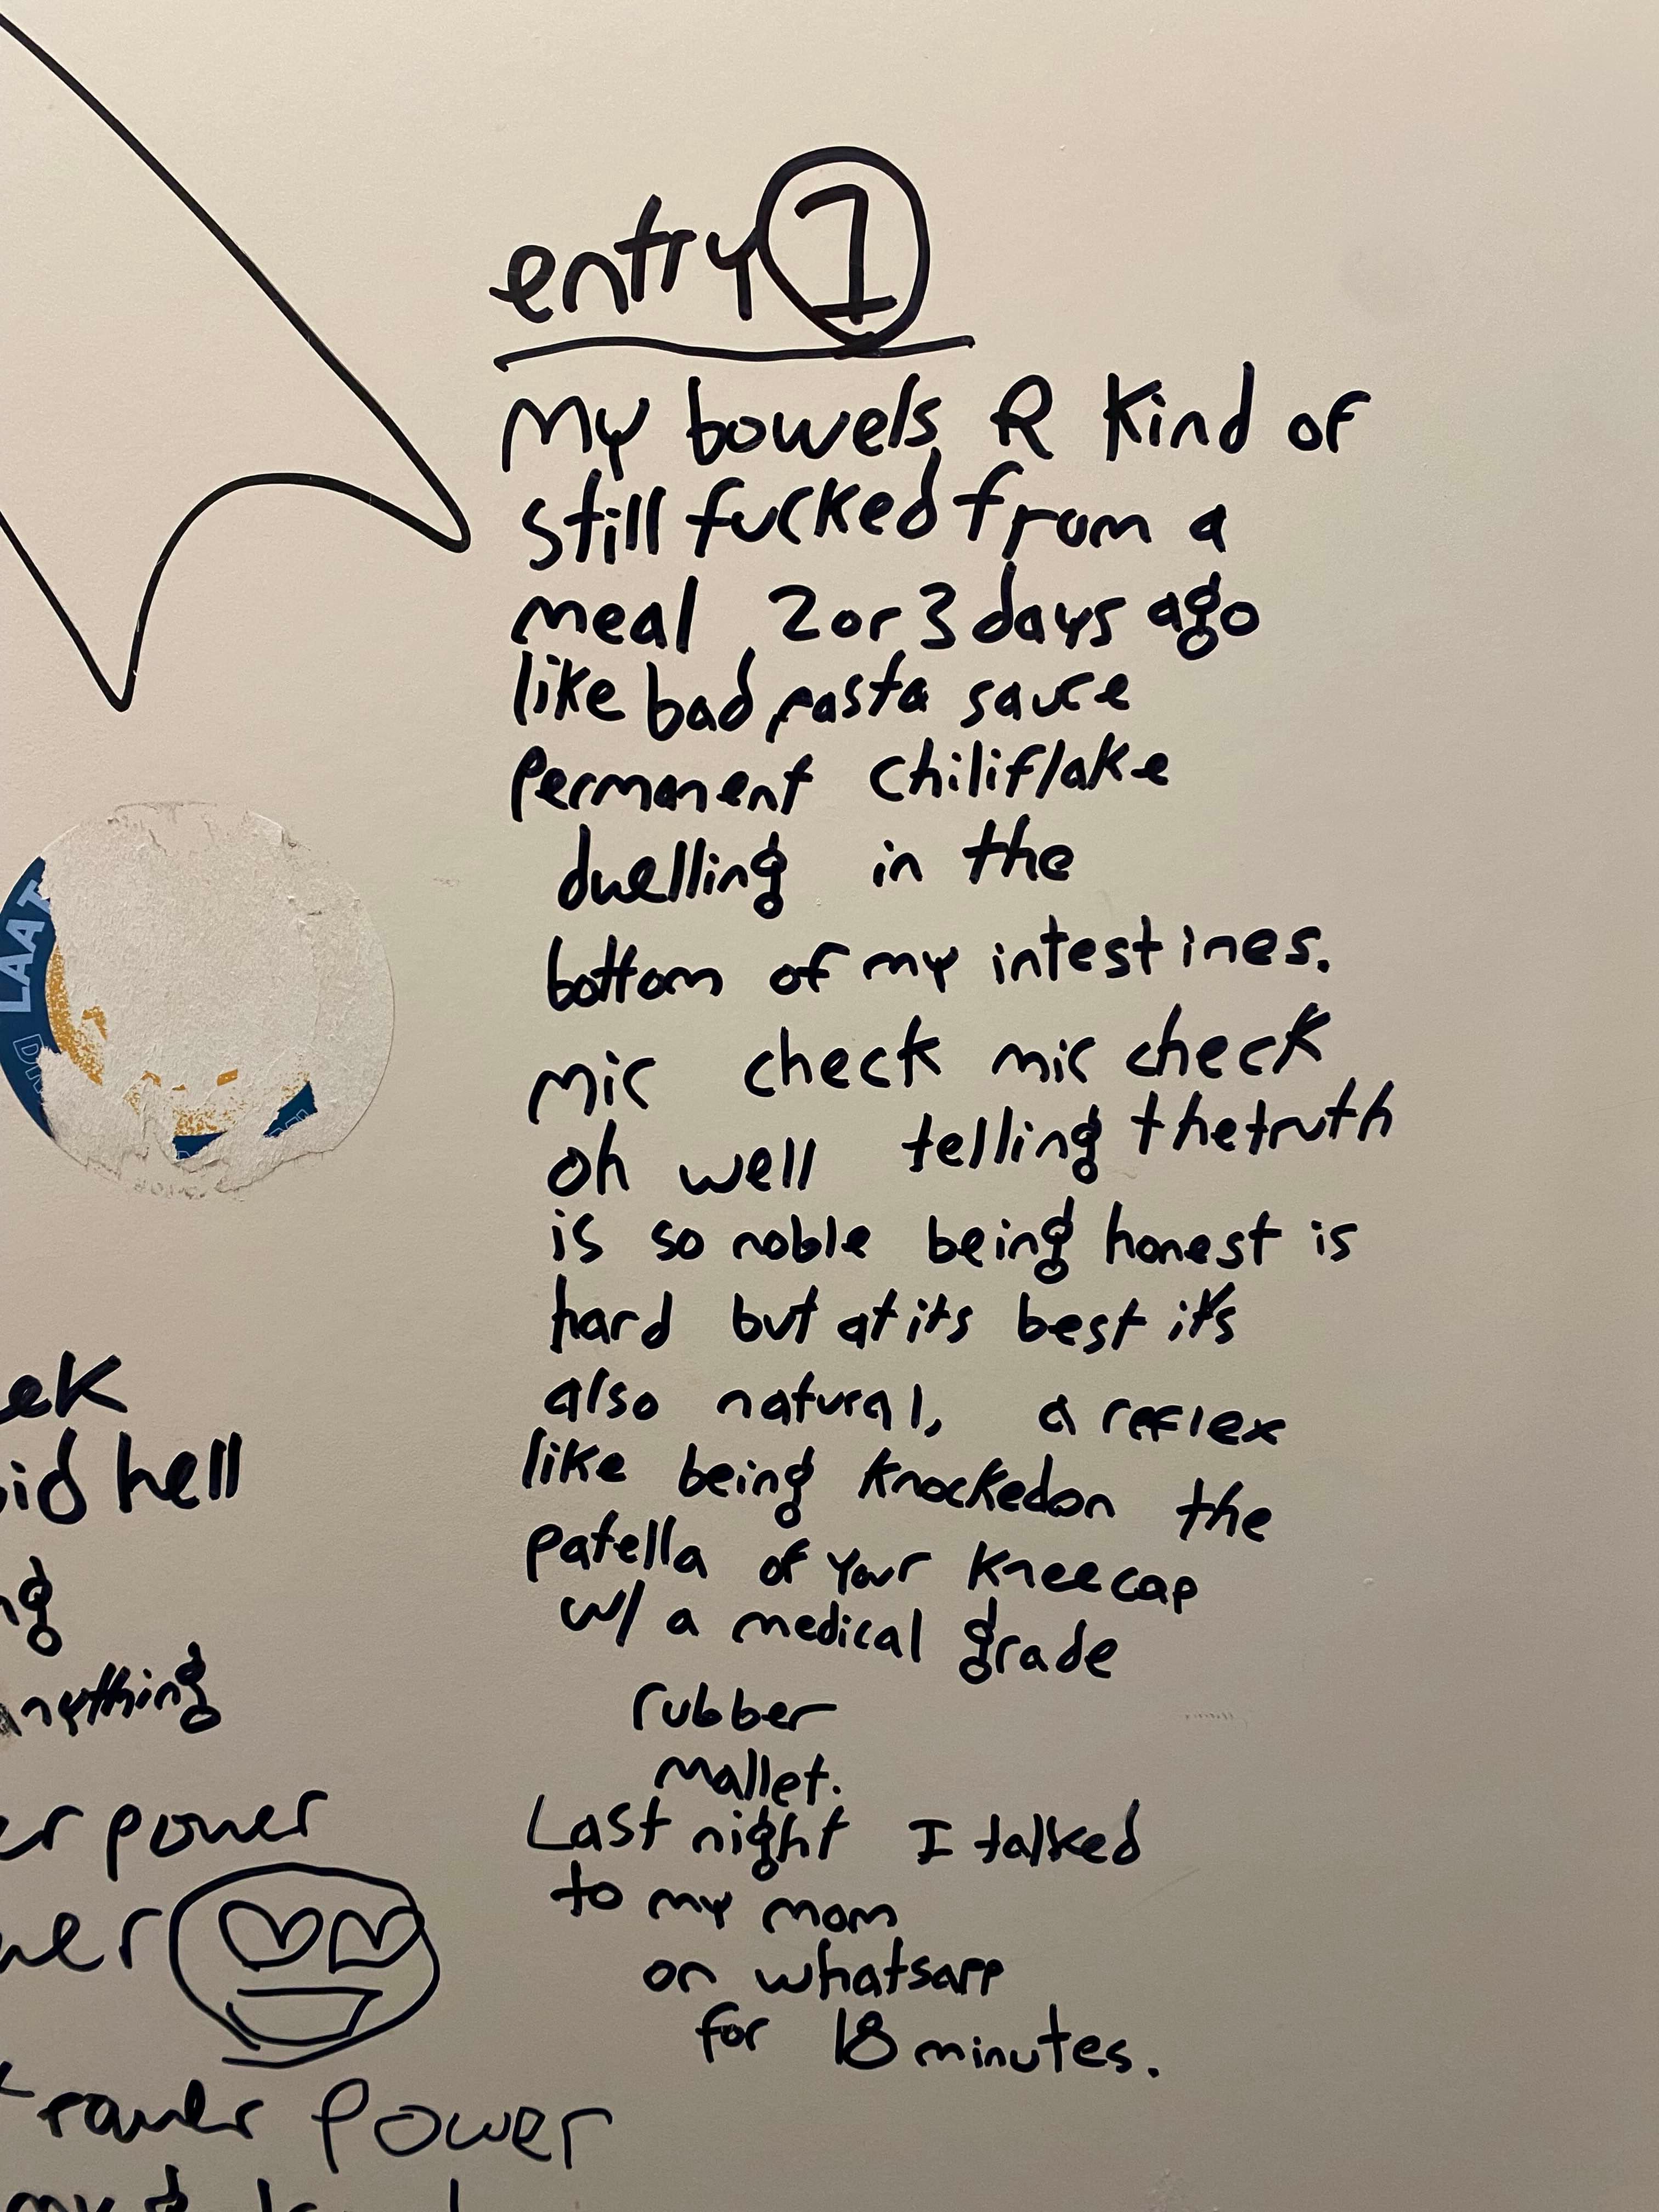 entry 1
My bowels R Kind of
still fucked from a
meal 2 or 3 days ago
like bad pasta sauce
permanent chiliflake
dwelling in the
bottom of my intestines.
mic check mic check
oh well telling the truth
is so noble being honest is
hard but at its best it's
also natural, a reflex
like being knocked on the
patella of your kneecap
w/ a medical grade
rubber
mallet.
Last night I talked
to my mom
on whatsapp
for 18 minutes.
LAAT
ek
id hell
ng
nything
er power
wer
raver power